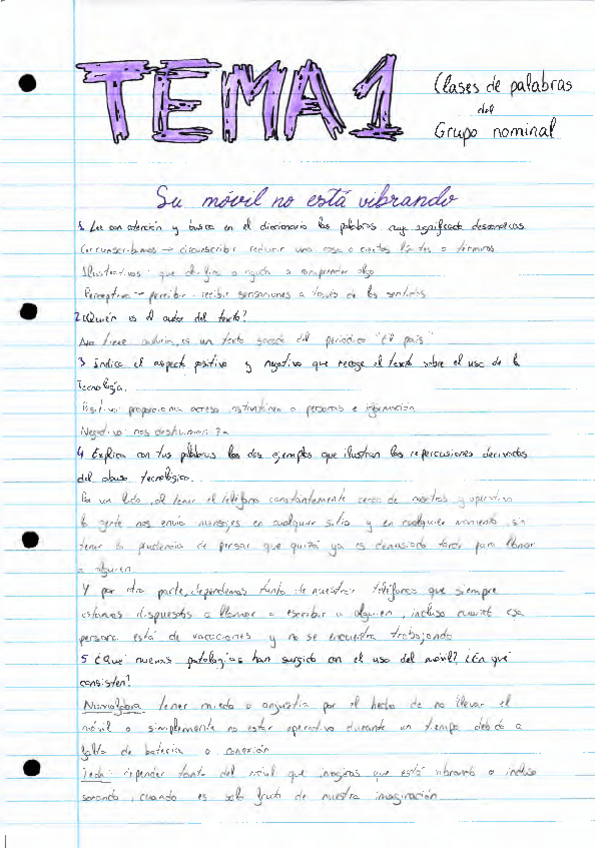 TEMA 1
Clases de palabras
del
Grupo nominal
Su móvil no está vibrando
1 Lee con atención y busca en el diccionario las palabras cuyo significado desconozcas
Circunscribamos → circunscribir reducir una cosa a ciertos límites o términos
Ilustrativos: que define o ayuda a comprender algo
Perceptivo → percibir: recibir sensaciones a través de los sentidos
2 ¿Quién es el autor del texto?
No tiene autoría, es un texto sacado del periódico "El país"
3 Indica el aspecto positivo y negativo que recoge el texto sobre el uso de la
Tecnología.
Positivo: proporciona acceso instantáneo a personas e información
Negativo: nos deshumaniza
4 Explica con tus palabras los dos ejemplos que ilustran las repercusiones derivadas
del abuso tecnológico.
Por un lado, al tener el teléfono constantemente cerca de nosotros y operativo
la gente nos envía mensajes en cualquier sitio y en cualquier momento, sin
tener la prudencia de pensar que quizá ya es demasiado tarde para llamar
a alguien
Y por otra parte, dependemos tanto de nuestros teléfonos que siempre
estamos dispuestos a llamar o escribir a alguien, incluso cuando esa
persona está de vacaciones y no se encuentra trabajando
5 ¿Qué nuevas patologías han surgido con el uso del móvil? ¿En qué
consisten?
Nomofobia: tener miedo o angustia por el hecho de no llevar el
móvil o simplemente no estar operativo durante un tiempo debido a
falta de batería o conexión
depender tanto del móvil que imaginas que está vibrando o incluso
sonando, cuando es solo fruto de nuestra imaginación